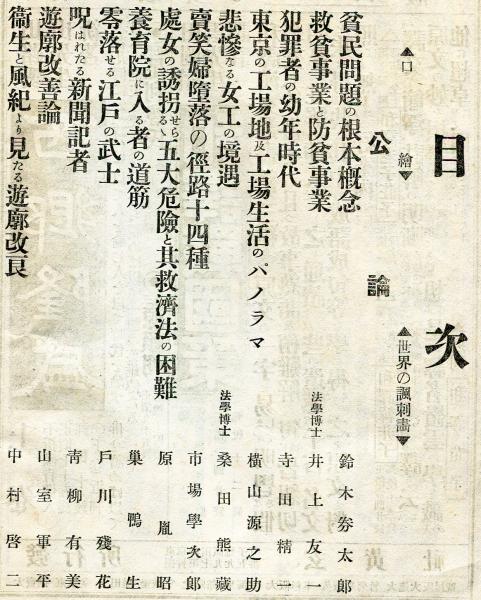 目次
▲口繪▼
▲世界の諷刺畫▼
公論
貧民問題の根本概念 鈴木券太郎
救貧事業と防貧事業 法學博士 井上友一
犯罪者の幼年時代 寺田精一
東京の工場地及工場生活のパノラマ 横山源之助
悲慘なる女工の境遇 法學博士 桑田熊藏
賣笑婦墮落の徑路十四種 市場學次郎
處女の誘拐せらるゝ五大危險と其救濟法の困難 原胤昭
養育院に入る者の道筋 巢鴨生
零落せる江戸の武士 戸川殘花
呪はれたる新聞記者 靑柳有美
遊廓改善論 山室軍平
衞生と風紀より見たる遊廓改良 中村啓二